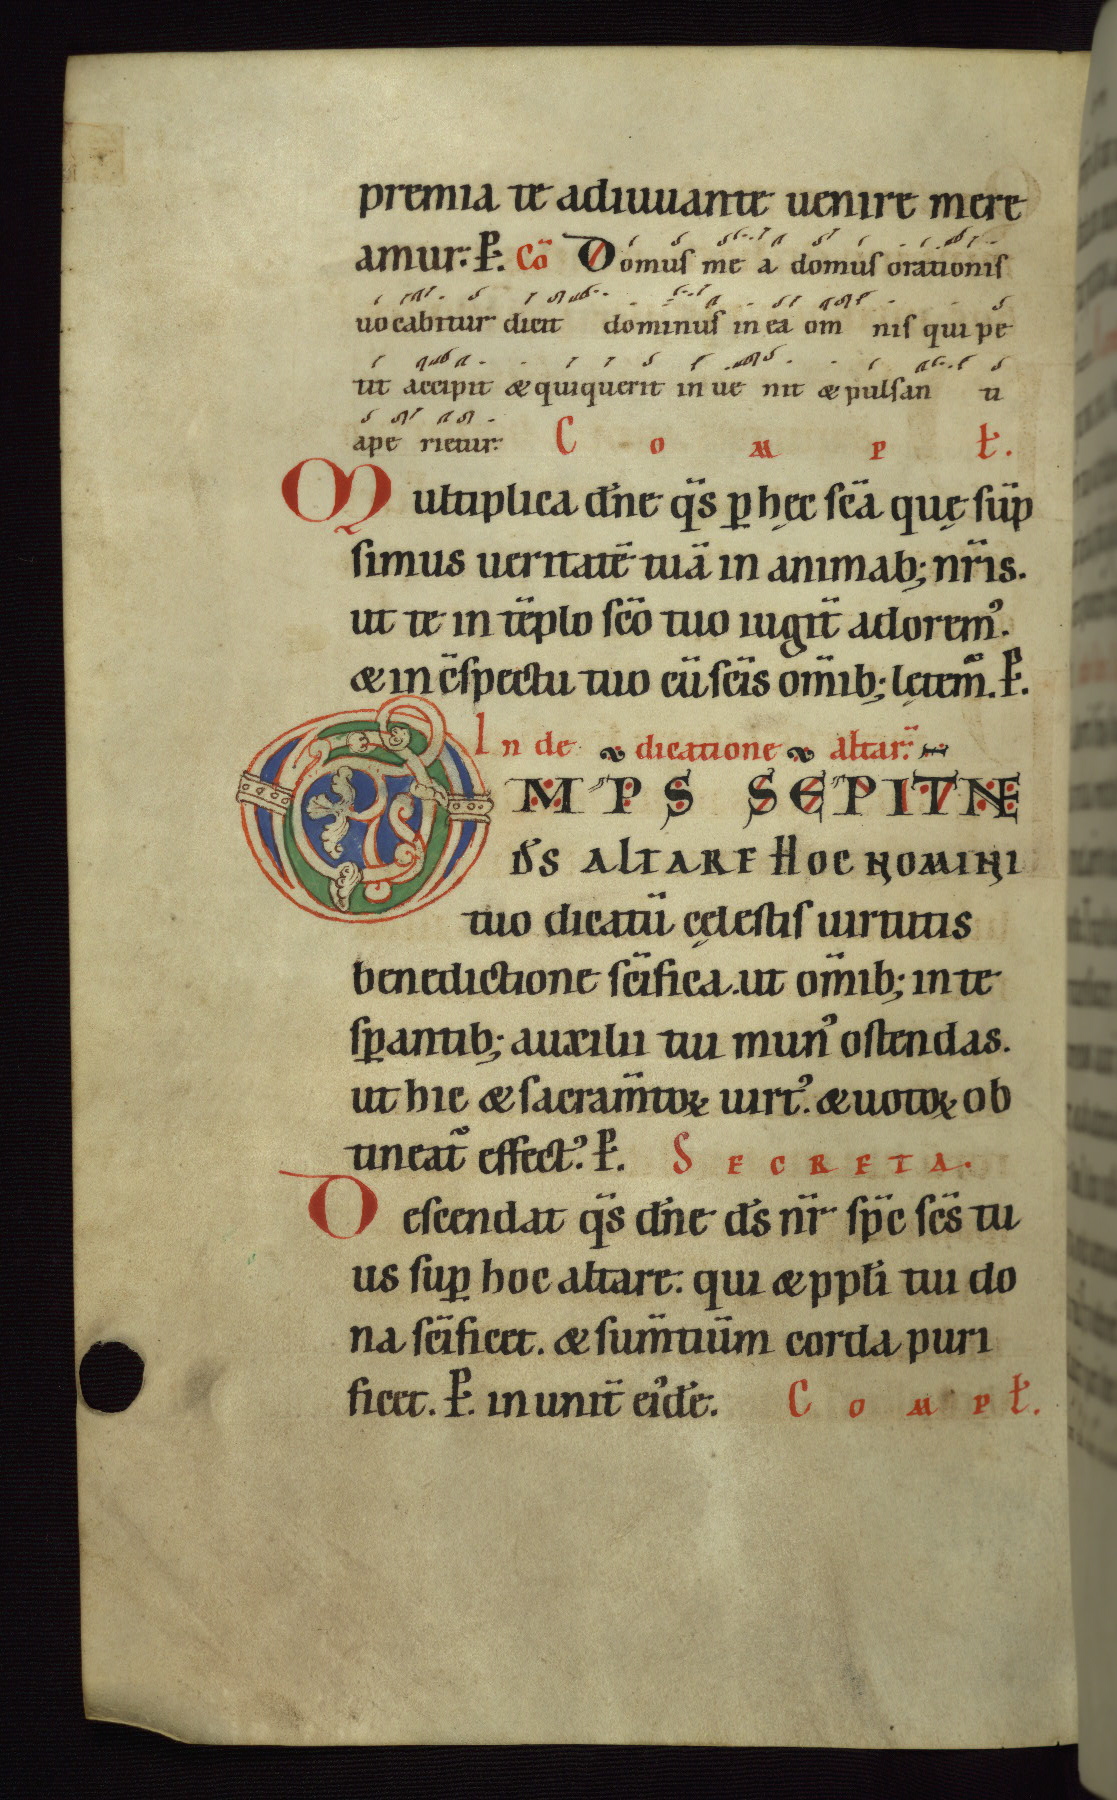 premia te adiuuante uenire mere
amur: P. Cō Domus me a domus orationis
uocabitur dicit dominus in ea om nis qui pe
tit accipit & qui querit in ue nit & pulsan ti
ape rietur: C o m p ł.
Multiplica dn̄e q̄s p̱ hęc sc̄a quę sūp
simus ueritatē tuā in animab; nr̄is.
ut te in tēplo sc̄o tuo iugit̄ adorem᾽.
& in c̄spectu tuo cū sc̄is om̄ib; lętem̄. P.
In de dicatione altar̄
OMPS SEPITNE
ds̄ ALTARE HOC NOMINI
tuo dicatū cęlestis uirtutis
benedictione sc̄ifica. ut om̄ib; in te
sp̱antib; auxilii tui mun᾽ ostendas.
ut hic & sacram̄toꝝ uirt᾽. & uotoꝝ ob
tineat᾽ effect᾽. P. SECRETA.
Descendat q̄s dn̄e ds̄ nr̄ sp̄c sc̄s tu
us sup̱ hoc altare. qui & ppłi tui do
na sc̄ificet. & sum̄tiūm corda puri
ficet. P. in unit̄ ei᾽dē. C o m p ł.